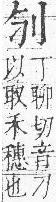 丁聊切音刁
以取禾穗也